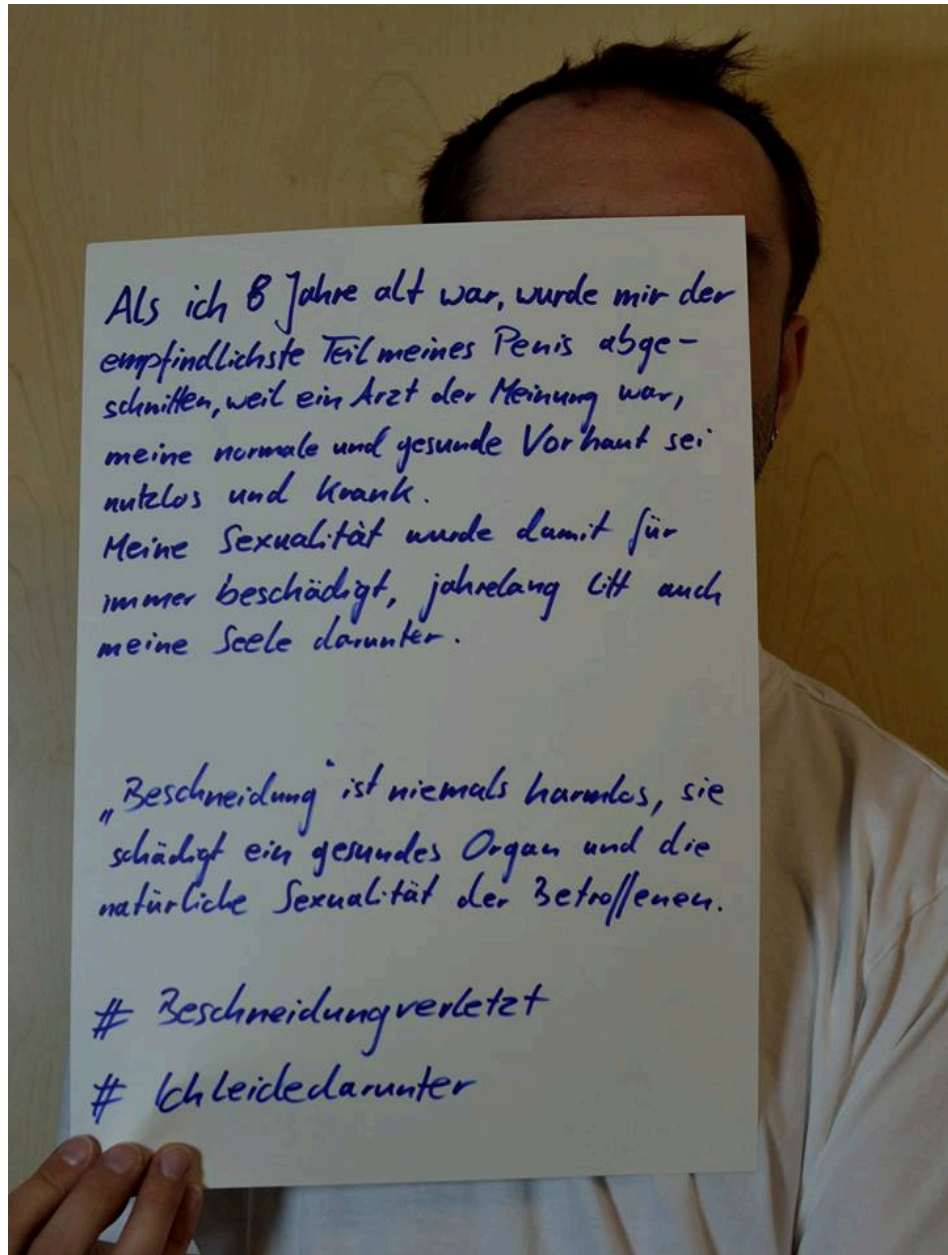 Als ich 8 Jahre alt war, wurde mir der
empfindlichste Teil meines Penis abge-
schnitten, weil ein Arzt der Meinung war,
meine normale und gesunde Vorhaut sei
nutzlos und krank.
Meine Sexualität wurde damit für
immer beschädigt, jahrelang litt auch
meine Seele darunter.
„Beschneidung“ ist niemals harmlos, sie
schädigt ein gesundes Organ und die
natürliche Sexualität der Betroffenen.
# Beschneidungverletzt
# Ichleidedarunter